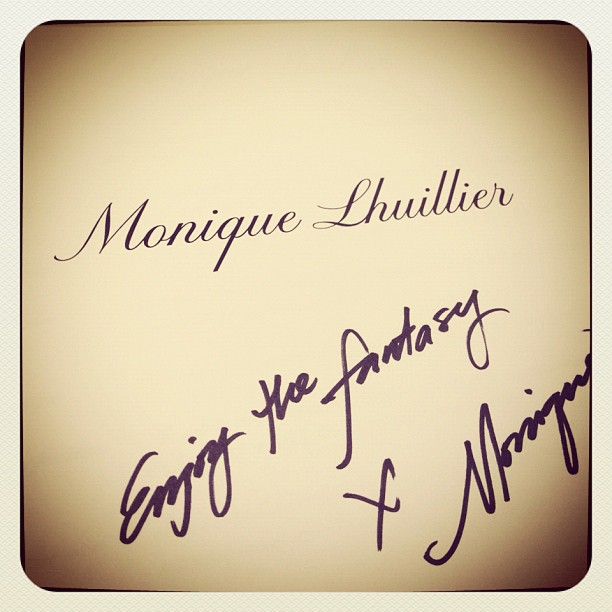 Monique Lhuillier
Enjoy the fantasy
X Monique